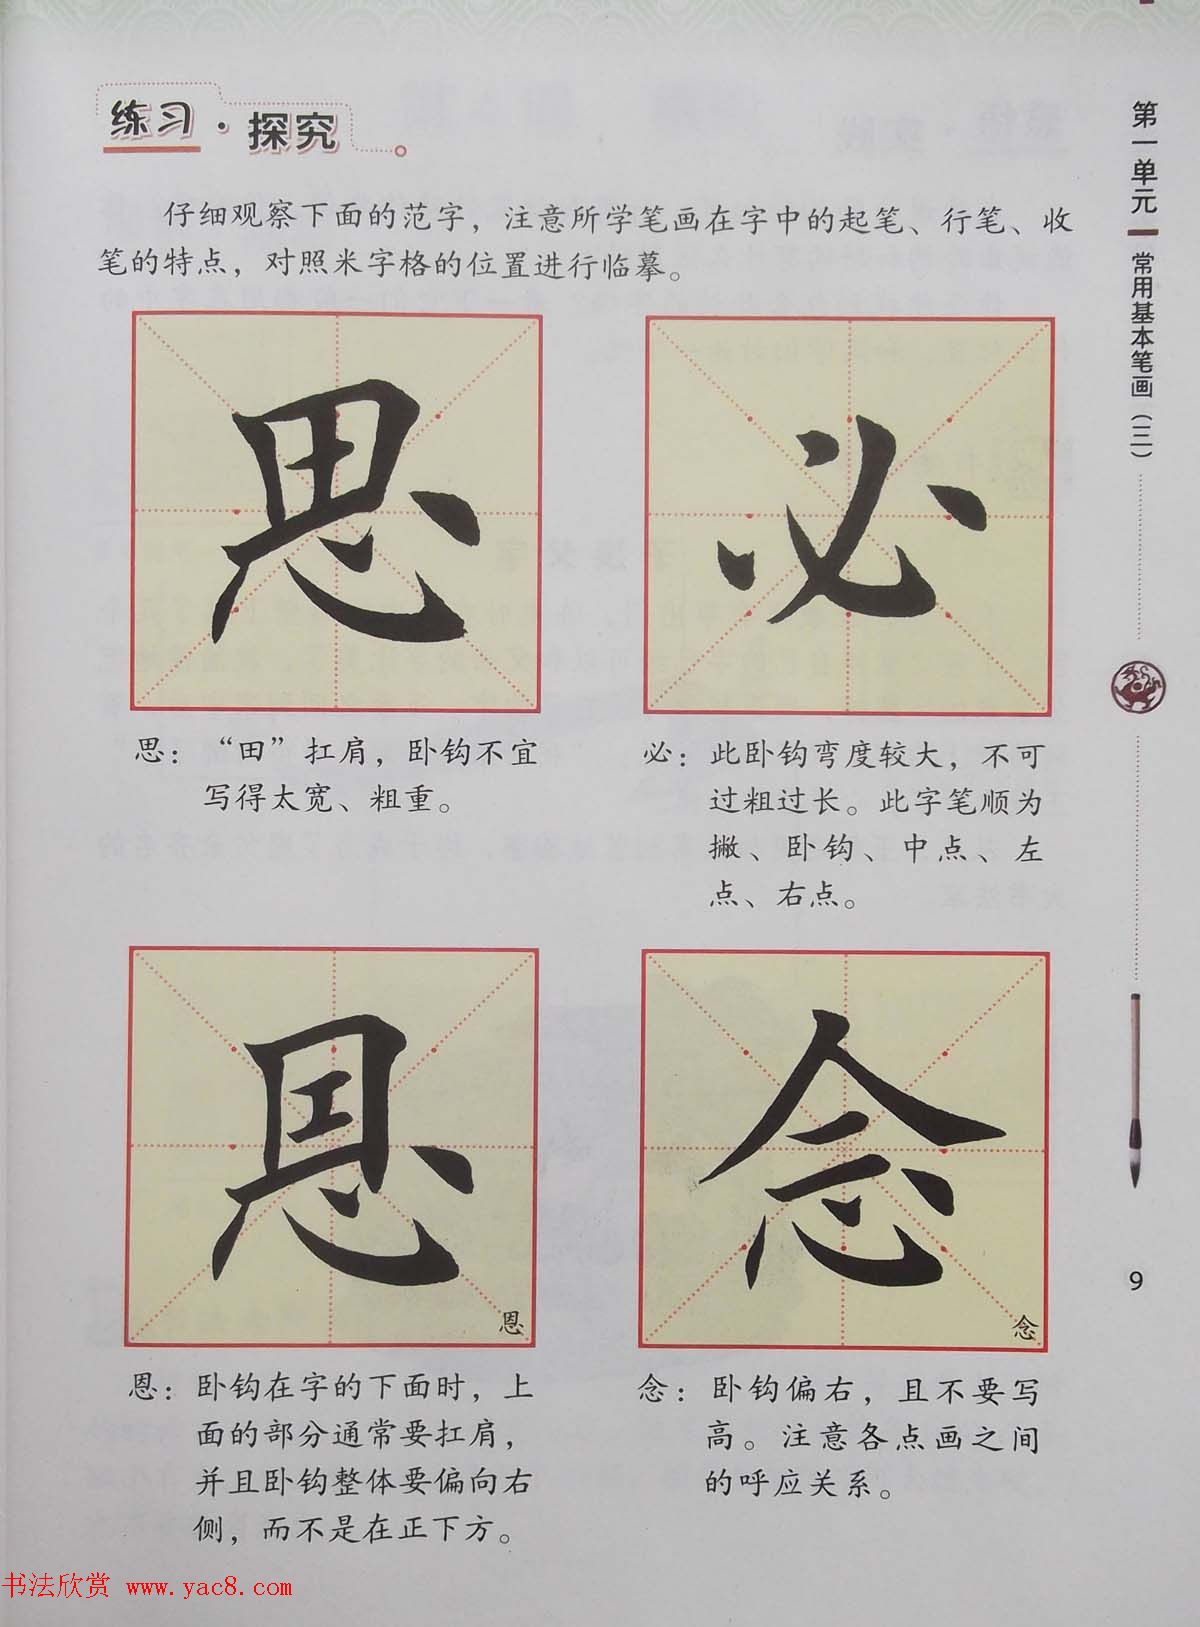 练习·探究
仔细观察下面的范字，注意所学笔画在字中的起笔、行笔、收
笔的特点，对照米字格的位置进行临摹。
思
必
思：“田”扛肩，卧钩不宜
写得太宽、粗重。
必：此卧钩弯度较大，不可
过粗过长。此字笔顺为
撇、卧钩、中点、左
点、右点。
恩
恩
念
念
恩：卧钩在字的下面时，上
面的部分通常要扛肩，
并且卧钩整体要偏向右
侧，而不是在正下方。
念：卧钩偏右，且不要写
高。注意各点画之间
的呼应关系。
第一单元
常用基本笔画（三）
9
书法欣赏 www.yac8.com